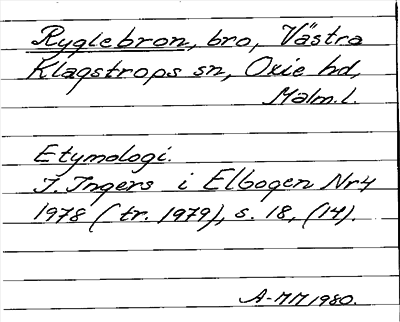 Ryglebron, bro, Västra
Klagstrops sn, Oxie hd,
Malm.l.
Etymologi.
I. Ingers i Elbogen Nr 4
1978 (tr. 1979), s. 18, (14).
A-MM 1980.